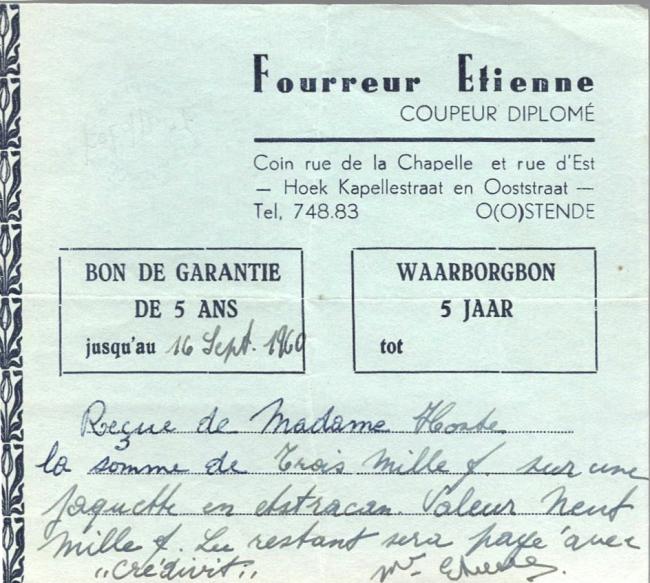 Fourreur Etienne
COUPEUR DIPLOMÉ
Coin rue de la Chapelle et rue d'Est
— Hoek Kapellestraat en Ooststraat —
Tel, 748.83 O(O)STENDE
BON DE GARANTIE
DE 5 ANS
jusqu'au 16 Sept. 1960
WAARBORGBON
5 JAAR
tot
Reçue de Madame Hoste
la somme de Trois Mille f. sur une
jaquette en astracan. Valeur Neuf
Mille f. Le restant sera payé avec
"Crédivit"